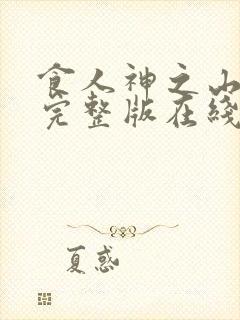 食人神之山
完整版在线
夏惑